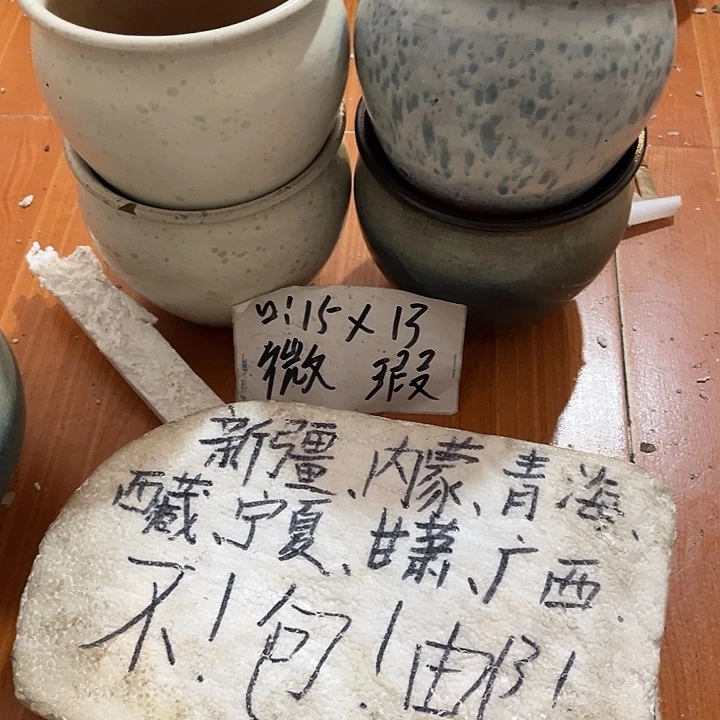 口:15×13
微 瑕
新疆、内蒙、青海、
西藏、宁夏、甘肃、广西.
不!包!邮!